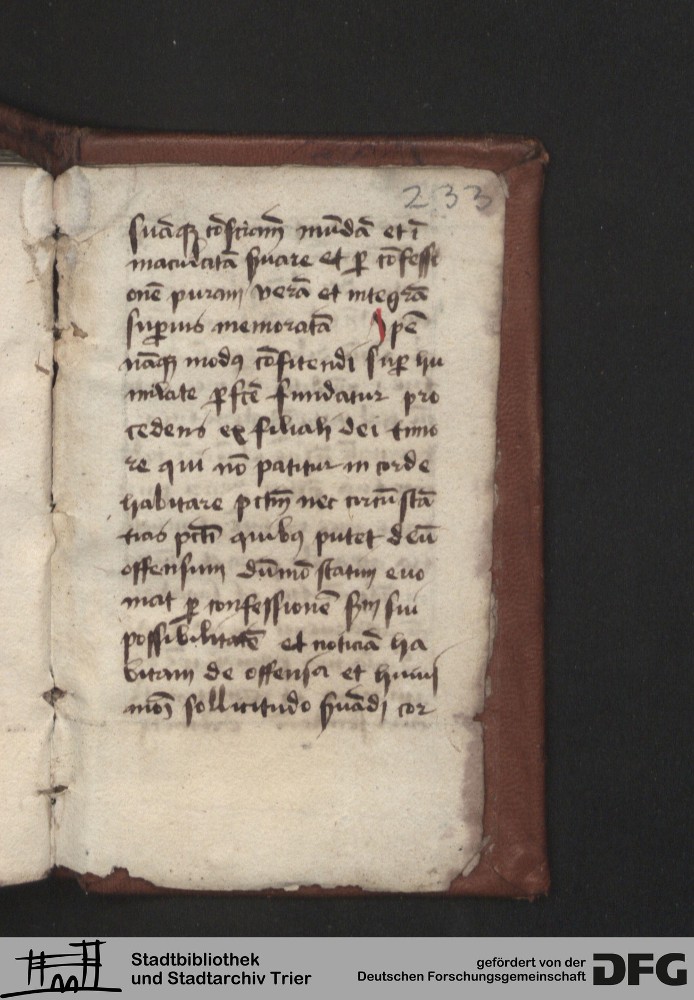 233
suāq cōsciam̄ mūdā et ī
maculatā s̄uare et p̱ cōfessi
onē puram verā et integrā
superius memoratā
nāq modꝰ cōfitendi sup̱ hu
militate fundatur pro
cedens ex filiali dei timo
re qui nō patitur in corde
habitare pctm̄ nec circūstā
tias pcti quibꝰ putet deū
offensum statim euo
mat p̱ confessionē sui
possibilitatē et noticiā ha
bitam de offensa et huiusi
sollicitudo s̄uādi cor
Stadtbibliothek
und Stadtarchiv Trier
gefördert von der
Deutschen Forschungsgemeinschaft
DFG